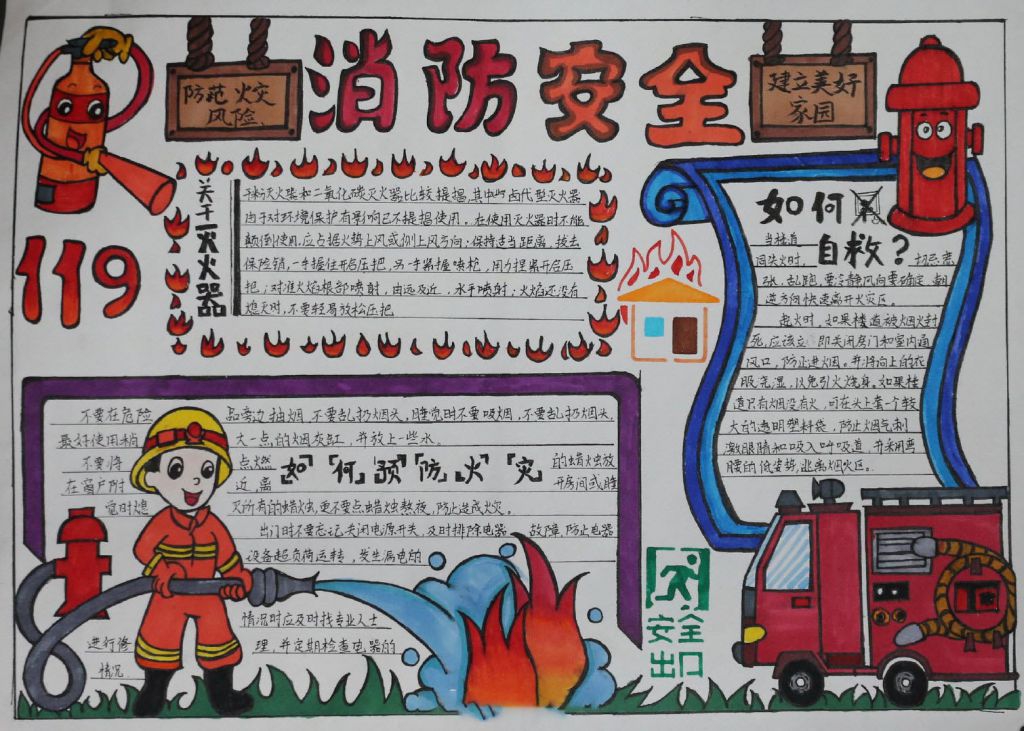 防范火灾
风险
消防安全
建立美好
家园
119
关于灭火器
干粉灭火器和二氧化碳灭火器比较提倡,其中 卤代型灭火器
由于对环境保护有影响已不提倡使用。在使用灭火器时不能
颠倒使用,应占据火势上风或侧上风方向,保持适当距离,拔去
保险销,一手握住开启压把,另一手紧握喷枪,用力捏紧开启压
把;对准火焰根部喷射,由远及近,水平喷射;火焰还没有
熄灭时,不要轻易放松压把
如何
自救?
当楼道
间失火时, 切忌慌
张、乱跑,要冷静风向要确定,朝
逆方向快速离开火灾区。
起火时,如果楼道被烟火封
死,应该立即关闭房门和室内通
风口,防止进烟。并将向上的衣
服浇湿,以免引火烧身。如果楼
道只有烟没有火,可在头上套一个较
大的透明塑料袋,防止烟气刺
激眼睛和吸入呼吸道,并采用弯
腰的低姿势,逃离烟火区。
不要在危险 品旁边抽烟,不要乱扔烟头,睡觉时不要吸烟,不要乱扔烟头。
最好使用稍 大一点的烟灰缸,并放上一些水。
不要将 点燃 如何预防火灾 的蜡烛放
在窗户附 近,离 开房间或睡
觉时熄 灭所有的蜡烛,更不要点蜡烛熬夜,防止造成火灾。
出门时不要忘记关闭电源开关,及时排除电器 故障,防止电器
设备超负荷运转,发生漏电的
情况时应及时找专业人士
进行修 理,并定期检查电器的
情况
安全
出口